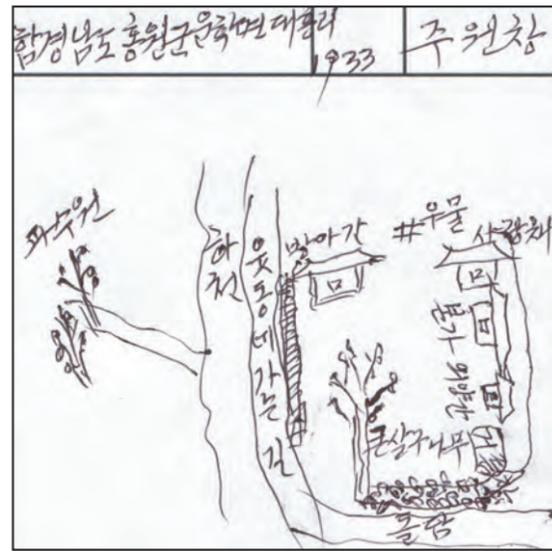 함경남도 홍원군 운학면 대흥리
1933
주원창
과수원
하천
웃동네가는길
방아간
#우물
사랑채
본가-외양간
큰살구나무
돌담